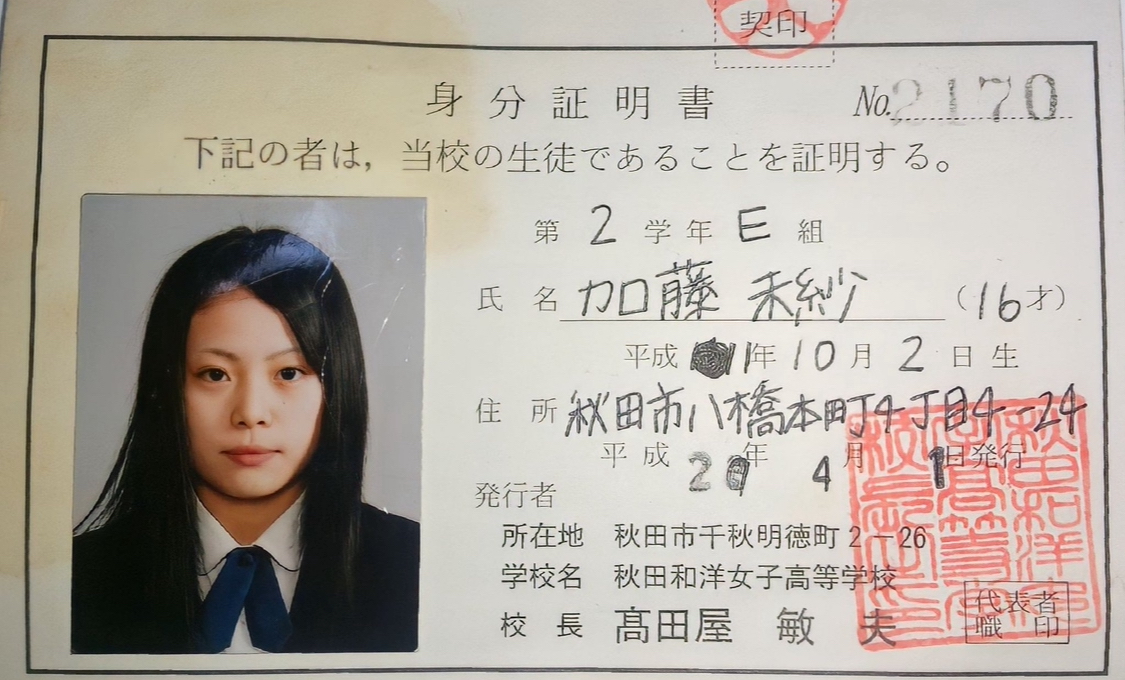 契印
身分証明書 No.2170
下記の者は，当校の生徒であることを証明する。
第 2 学年 E 組
氏名 加藤 未紗 （16才）
平成 11年 10月 2日生
住所 秋田市八橋本町4丁目4-24
平成 20年 4月 1日発行
発行者
所在地 秋田市千秋明徳町2－26
学校名 秋田和洋女子高等学校
校長 髙田屋 敏夫
代表者
職印